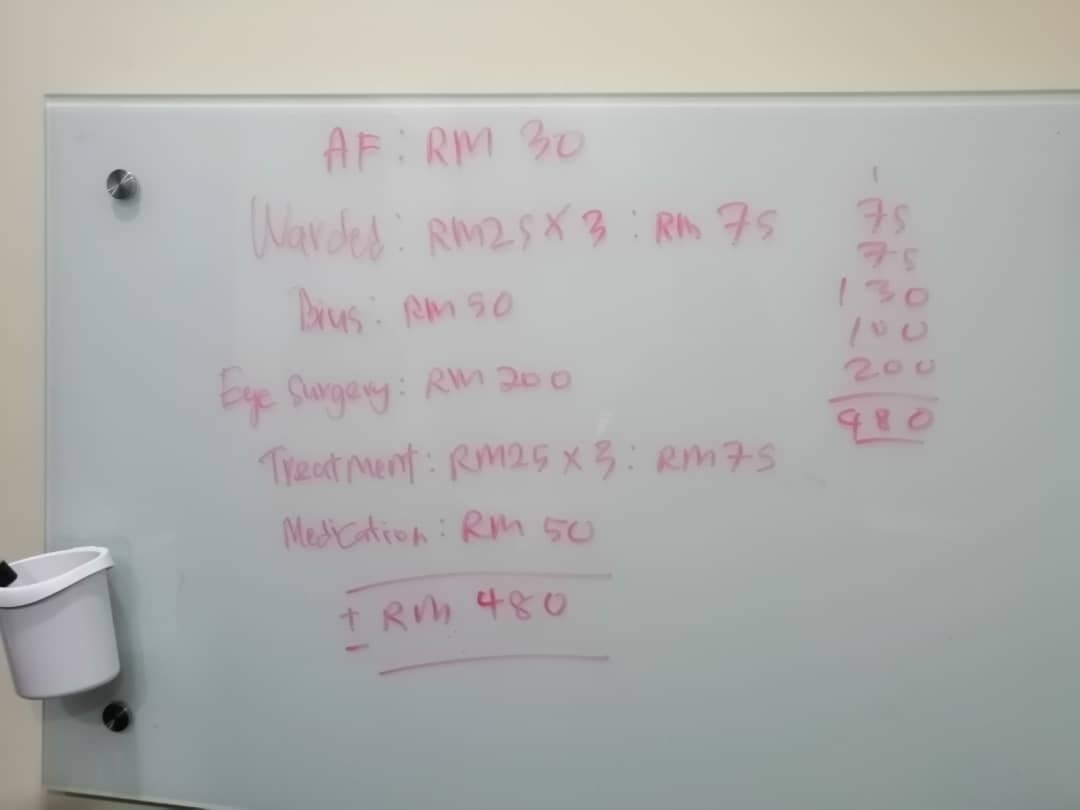 AF: RM 30
Warded: RM25 x 3: RM 75
Bius: RM 50
Eye Surgery: RM 200
Treatment: RM25 x 3: RM75
Medication: RM 50
± RM 480
1
75
75
130
100
200
480